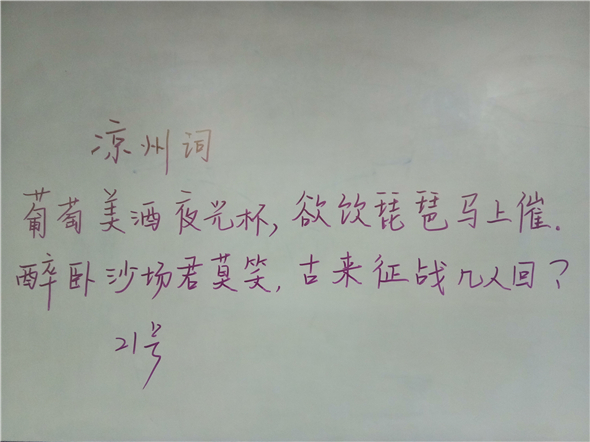 凉州词
葡萄美酒夜光杯,欲饮琵琶马上催.
醉卧沙场君莫笑,古来征战几人回?
21号